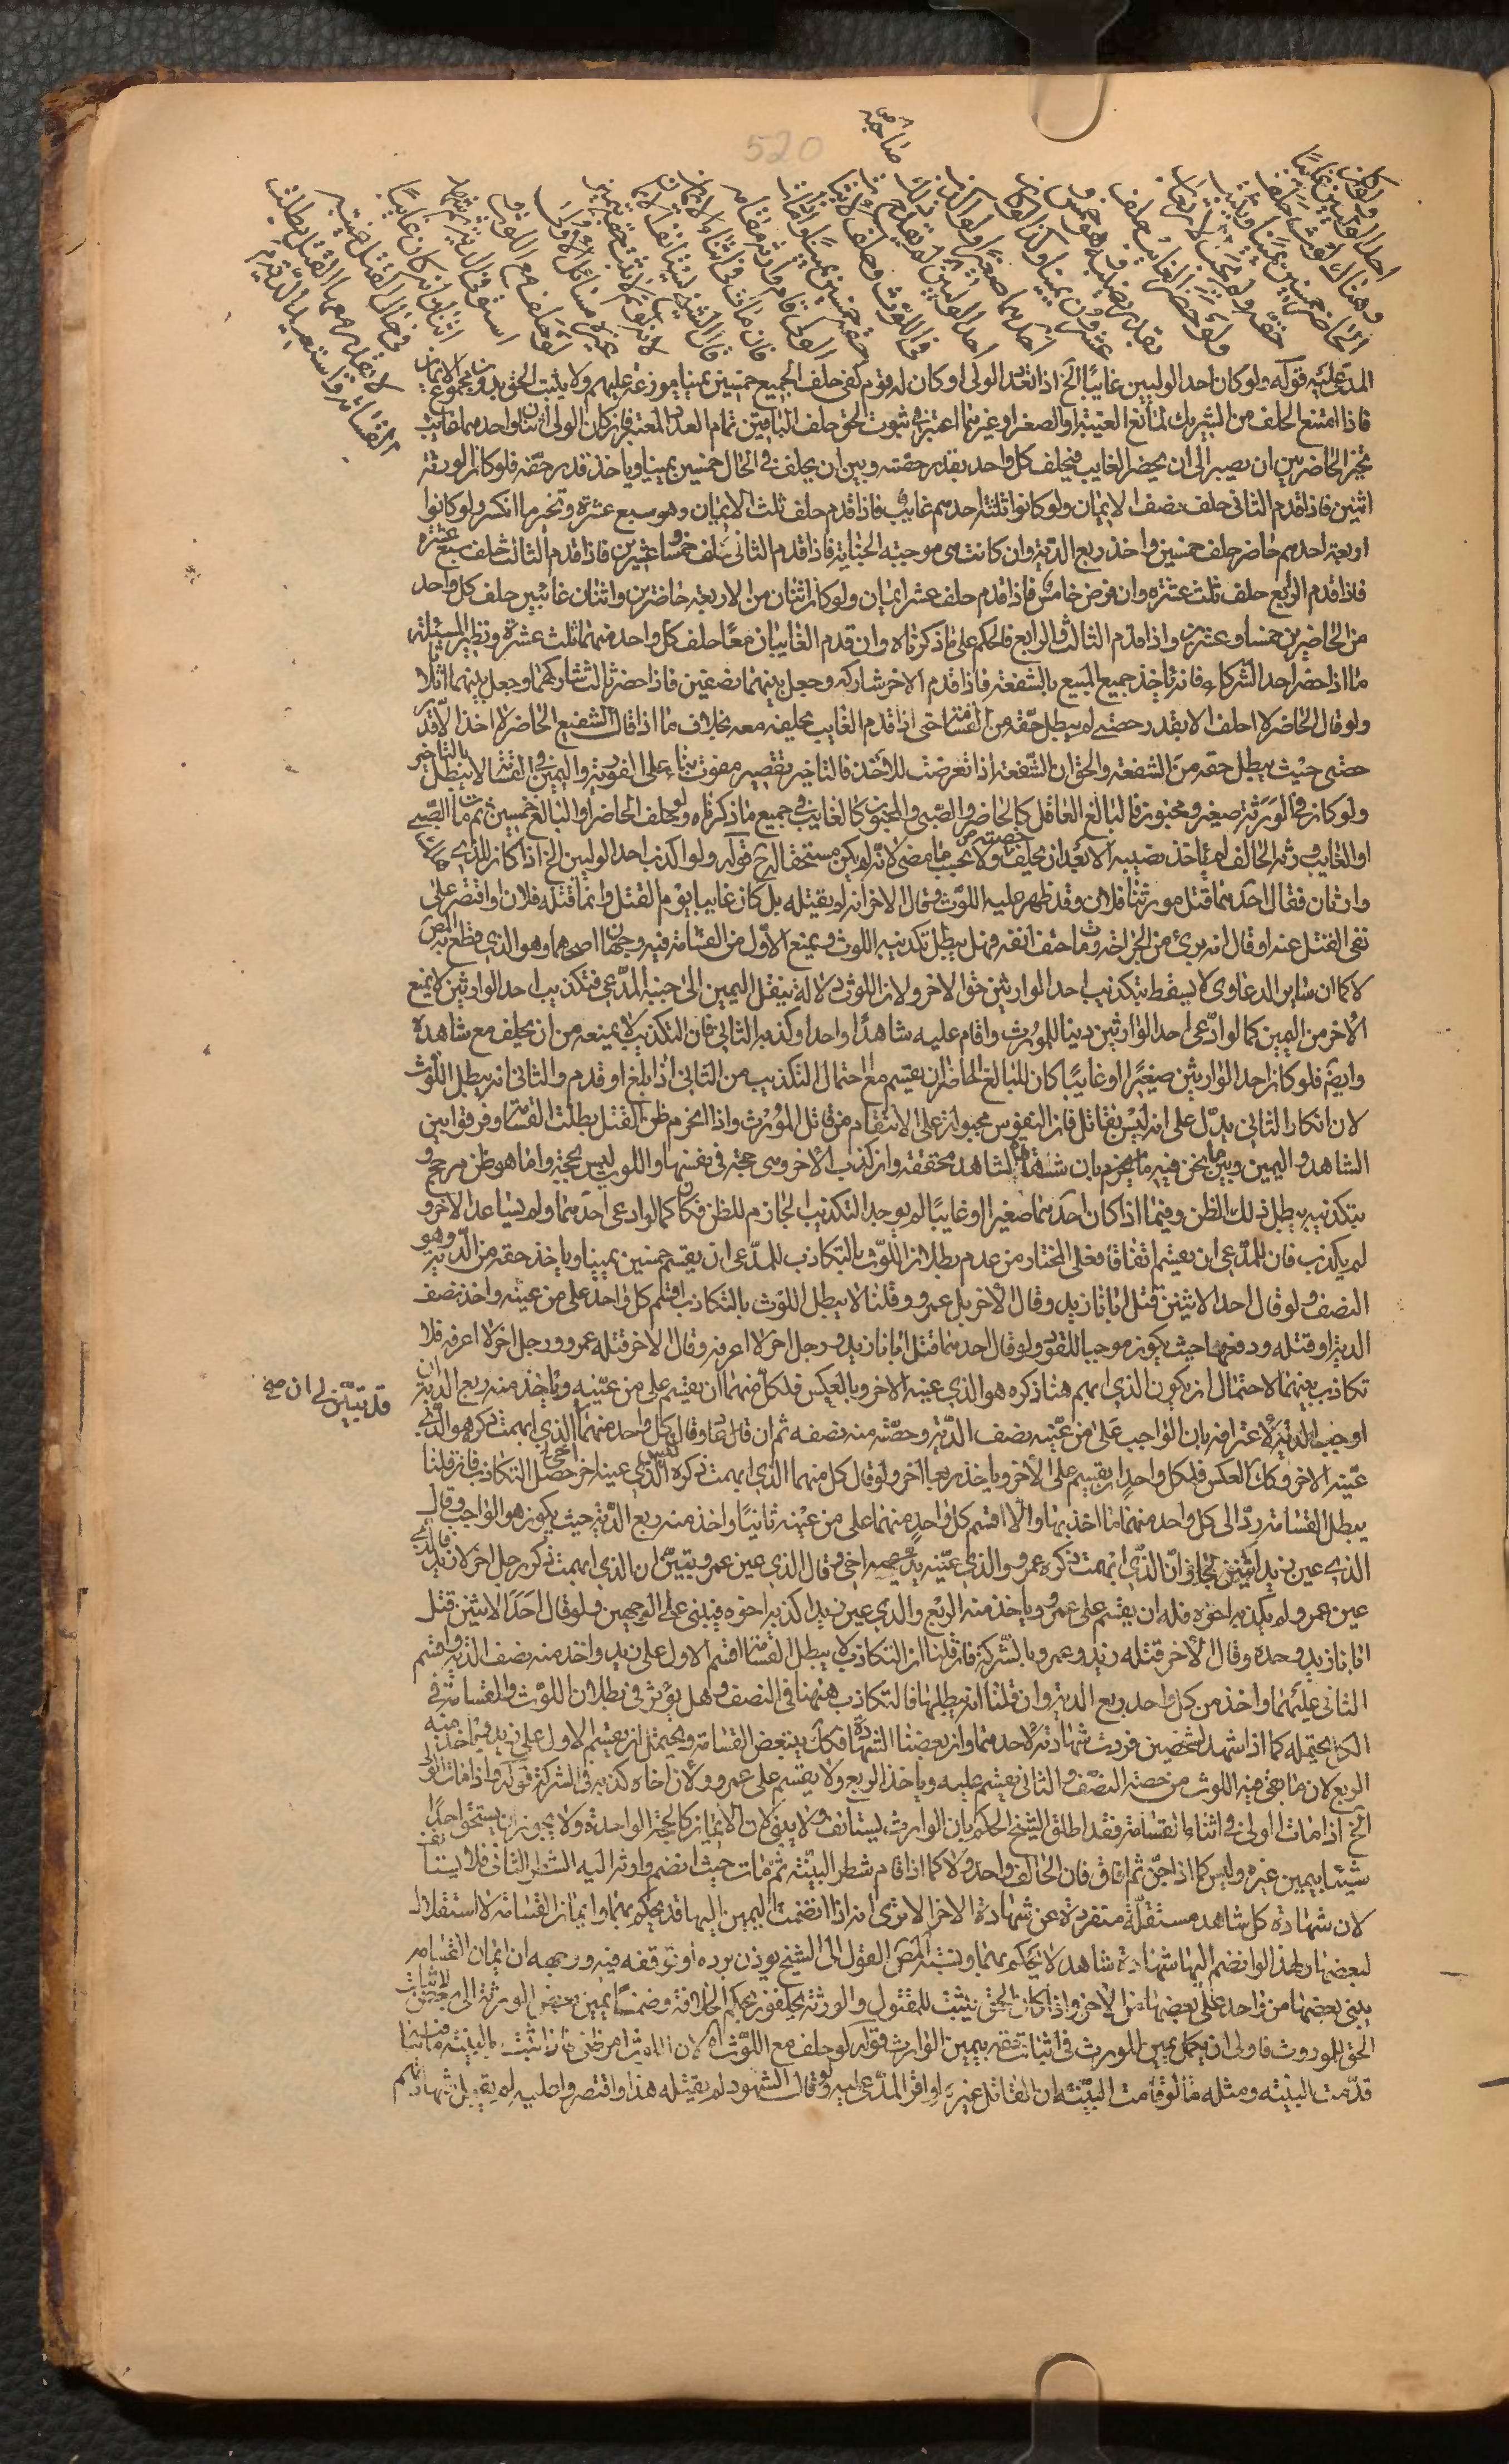 ولو كان
احد الوليين غايبًا
وهناك لوث حلف
الحاضر خمسين يمينا ويثبت
حقه ولم يجب الارتقاب
ولو حضر الغايب حلف
بقدر نصيبه وهو خمس و
عشرون يمينا وكذا لو كان
احدهما صغيرًا ولو اكذب
احد الوليين صاحبه لم يقدح ذلك
في اللوث وحلف لاثبات
حقه خمسين يمينًا واذا مات
الولي قام وارثه مقامه
فان مات في اثناء الايمان
قال الشيخ يستانف الايمان
لانه لو اتم لاثبت حقه بيمين
غيره مسائل الاولى
لو حلف مع اللوث و
استوفى الدية ثم شهد
اثنان انه كان غايبًا
في حال القتل غيبة
لا يقدر معها القتل بطلت
القسامة واستعيدت الدية
المدعى عليه قوله ولو كان احد الوليين غايبًا الخ اذا تعدد الولي او كان له قوم كفى حلف الجميع خمسين يمينا موزعة عليهم ولا يثبت الحق بدون مجموع الايمان
فاذا امتنع الحلف من الشريك لمانع الغيبة او الصغر او غيرهما اعتبر في ثبوت الحق حلف الباقين تمام العدد المعتبر فان كان الولي اثنان واحدهما غايب
تخير الحاضر بين ان يصبر الى ان يحضر الغايب فيحلف كل واحد بقدر حقه وبين ان يحلف في الحال خمسين يمينا وياخذ قدر حقه فلو كان الورثة
اثنين فاذا قدم الثاني حلف نصف الايمان ولو كانوا ثلثة احدهم غايب فاذا قدم حلف ثلث الايمان وهو سبع عشرة وتخير ما انكسر ولو كانوا
اربعة احدهم حاضر حلف خمسين واخذ ربع الدية وان كانت هي موجبه الجناية فاذا قدم الثاني حلف خمسا وعشرين فاذا قدم الثالث حلف سبع عشرة
فاذا قدم الرابع حلف ثلث عشرة وان فرض خامس فاذا قدم حلف عشر ايمان ولو كان اثنان من الاربعة حاضرين واثنان غائبين حلف كل واحد
من الحاضرين خمسا وعشرين واذا قدم الثالث والرابع فالحكم على ما ذكرناه وان قدم الغايبان معًا حلف كل واحد منهما ثلث عشرة ونظير المسئلة
ما اذا حضر احد الشركاء فانه ياخذ جميع المبيع بالشفعة فاذا قدم الاخر شاركه وجعل بينهما نصفين فاذا حضر ثالث شاركهما وجعل بينهما اثلاثا
ولو قال الحاضر لا احلف الا بقدر حصتي لم يبطل حقه من القسامة حتى اذا قدم الغايب يحلف معه بخلاف ما اذا قال الشفيع الحاضر لا اخذ الا قدر
حصتي حيث يبطل حقه من الشفعة والحق ان الشفعة اذا تعرضت للاخذ فالتاخير تقصير مفوت بناء على الفورية واليمين في القسامة لا يبطل بالتاخير
ولو كان في الورثة صغير ومجنون فالبالغ العاقل كالحاضر والصبي والمجنون كالغايب في جميع ما ذكرناه ولو حلف الحاضر او البالغ خمسين ثم مات الصبي
او الغايب وورثه الحالف لم ياخذ نصيبه الا بعد ان يحلف حصته ولا يحسب ما مضى لانه لم يكن مستحقا له ح قوله ولو اكذب احد الوليين الخ اذا كان للدم
وارثان فقال احدهما قتل مورثنا فلان وقد ظهر عليه اللوث وقال الاخر انه لم يقتله بل كان غايبا يوم القتل وانما قتله فلان او اقتصر على
نفي القتل عنه او قال انه برئ من الجراحة ومات حتف انفه فهل يبطل تكذيبه اللوث ويمنع الاول من القسامة فيه وجهان اصحهما وهو الذي قطع به المص
لا كما ان ساير الدعاوى لا يسقط بتكذيب احد الوارثين حق الاخر ولان اللوث دلالة ينقل اليمين الى جنبة المدعي فتكذيب احد الوارثين لا يمنع
الاخر من اليمين كما لو ادعى احد الوارثين دينا للمورث واقام عليه شاهدًا واحدا وكذبه الثاني فان التكذيب لا يمنعه من ان يحلف مع شاهده
وايضًا فلو كان احد الوارثين صغيرًا او غايبًا كان للبالغ الحاضر ان يقسم مع احتمال التكذيب من الثاني اذا بلغ او قدم والثاني انه يبطل اللوث
لان انكار الثاني يدل على انه ليس بقاتل فان النفوس مجبولة على الانتقام من قاتل المورث واذا انخرم ظن القتل بطلت القسامة وفرقوا بين
الشاهد واليمين وبين ما نحن فيه بان شهادة الشاهد محققة وان كذب الاخر وهي حجة في نفسها واللوث ليس بحجة وانما هو ظن مرجح و
بتكذيبه يبطل ذلك الظن وفيما اذا كان احدهما صغيرا او غايبًا لم يوجد التكذيب الجازم للظن فكان كما لو ادعى احدهما ولم يساعد الاخر و
لم يكذب فان للمدعي ان يقسم اتفاقا فعلى المختار من عدم بطلان اللوث بالتكاذب للمدعي ان يقسم خمسين يمينا وياخذ حقه من الدية وهو
النصف ولو قال احد الاثنين قتل ابانا زيد وقال الاخر بل عمرو وقلنا لا يبطل اللوث بالتكاذب اقسم كل واحد على من عينه واخذ نصف
الدية او قتله ودفعها حيث يكون موجبا للقود ولو قال احدهما قتل ابانا زيد ورجل اخر لا اعرفه وقال الاخر قتله عمرو ورجل اخر لا اعرفه فلا
تكاذب بينهما لاحتمال ان يكون الذي ابهم هنا ذكره هو الذي عينه الاخر وبالعكس فلكل منهما ان يقسم على من عينه وياخذ منه ربع الدية ان
اوجب الدية لاعترافه بان الواجب على من عينه نصف الدية وحصته منه نصفه ثم ان قال بعد وقال كل واحد منهما الذي ابهمت ذكره هو الذي
قد تبين لي ان صح
عينه الاخر وكك العكس فلكل واحد ان يقسم على الاخر وياخذ ربعا اخر ولو قال كل منهما الذي ابهمت ذكره ليس الذي عينه اخي حصل التكاذب فان قلنا
يبطل القسامة رد الى كل واحد منهما ما اخذ بها والا اقسم كل واحد منهما على من عينه ثانيًا واخذ منه ربع الدية حيث يكون هو الواجب وقال
الذي عين زيدا تبين لي ان الذي ابهمت ذكره عمرو والذي عينه اخي وقال الذي عين عمرو تبين ان الذي ابهمت ذكره رجل اخر لا زيد فالذي
عين عمرو لم يكذبه اخوه فله ان يقسم على عمرو وياخذ منه الربع والذي عين زيدا كذبه اخوه فيبنى على الوجهين ولو قال احد الاثنين قتل
ابانا زيد وحده وقال الاخر قتله زيد وعمرو بالشركة فان قلنا ان التكاذب لا يبطل القسامة اقسم الاول على زيد واخذ منه نصف الدية واقسم
الثاني عليهما واخذ من كل واحد ربع الدية وان قلنا انه يبطلها فالتكاذب ههنا في النصف وهل يؤثر في بطلان اللوث والقسامة في
الكل يحتمله كما اذا شهد لشخصين فردت شهادته لاحدهما وان بعضنا الشهادة فكك يتبعض القسامة ويحتمل ان يقسم الاول على زيد وياخذ منه
الربع لان ما بقي فيه اللوث من حصته النصف والثاني يقسم عليه وياخذ الربع ولا يقسم على عمرو لان اخاه كذبه في الشركة قوله واذا مات الولي
الخ اذا مات الولي في اثناء القسامة فقد اطلق الشيخ الحكم بان الوارث يستانف ولا يبني لان الايمان كالحجة الواحدة ولا يجوز ان يستحق احد
شيئا بيمين غيره وليس كما اذا جن ثم افاق فان الحالف واحد ولا كما اذا اقام شطر البينة ثم مات حيث يضم وارثه اليه الشطر الثاني فلا يستانف
لان شهادة كل شاهد مستقلة متفردة عن شهادة الاخر الا ترى انه اذا انضمت اليمين اليها قد يحكم بهما وايمان القسامة لا استقلال
لبعضها ولهذا لو انضم اليها شهادة شاهد لا يحكم بهما ونسبة المص القول الى الشيخ يوذن برده او توقفه فيه ووجهه ان ايمان القسامة
يبنى بعضها من واحد على بعضها من الاخر واذا كان الحق يثبت للمقتول والورثة يحلفون بحكم الخلافة وضمنا يمين بعض الورثة الى بعض لاثبات
الحق للموروث فاولى ان يكمل يمين المورث في اثبات حقه بيمين الوارث قوله لو حلف مع اللوث اه لان اللوث امر ظني فاذا ثبت بالبينة ما ينافيه
قدمت البينة ومثله ما لو قامت البينة ان القاتل غيره او اقر المدعى عليه ولو قال الشهود لم يقتله هذا واقتصروا عليه لم يقبل شهادتهم